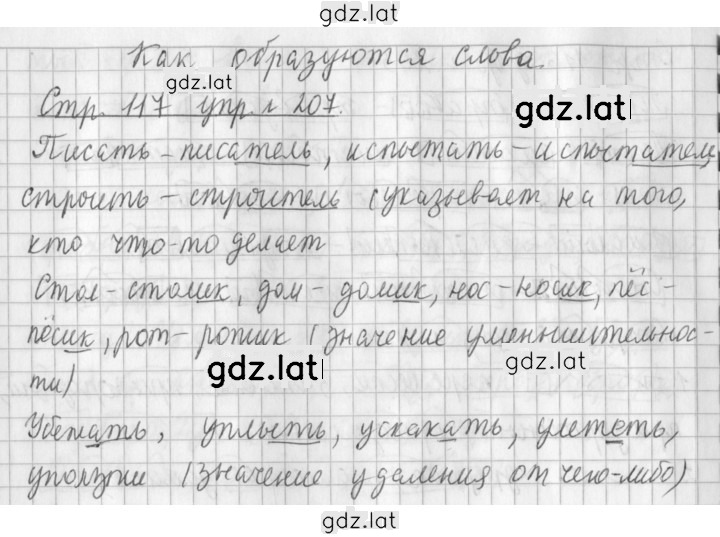 gdz.lat
Как образуются слова.
gdz.lat
Стр. 117 упр. № 207.
gdz.lat
Писать – писатель, испытать – испытатель,
строить – строитель (указывает на того,
кто что-то делает
Стол – столик, дом – домик, нос – носик, пёс –
пёсик, рот – ротик (значение уменьшительнос-
gdz.lat
gdz.lat
ти)
Убежать, уплыть, ускакать, улететь,
уползти (значение удаления от чего-либо)
gdz.lat